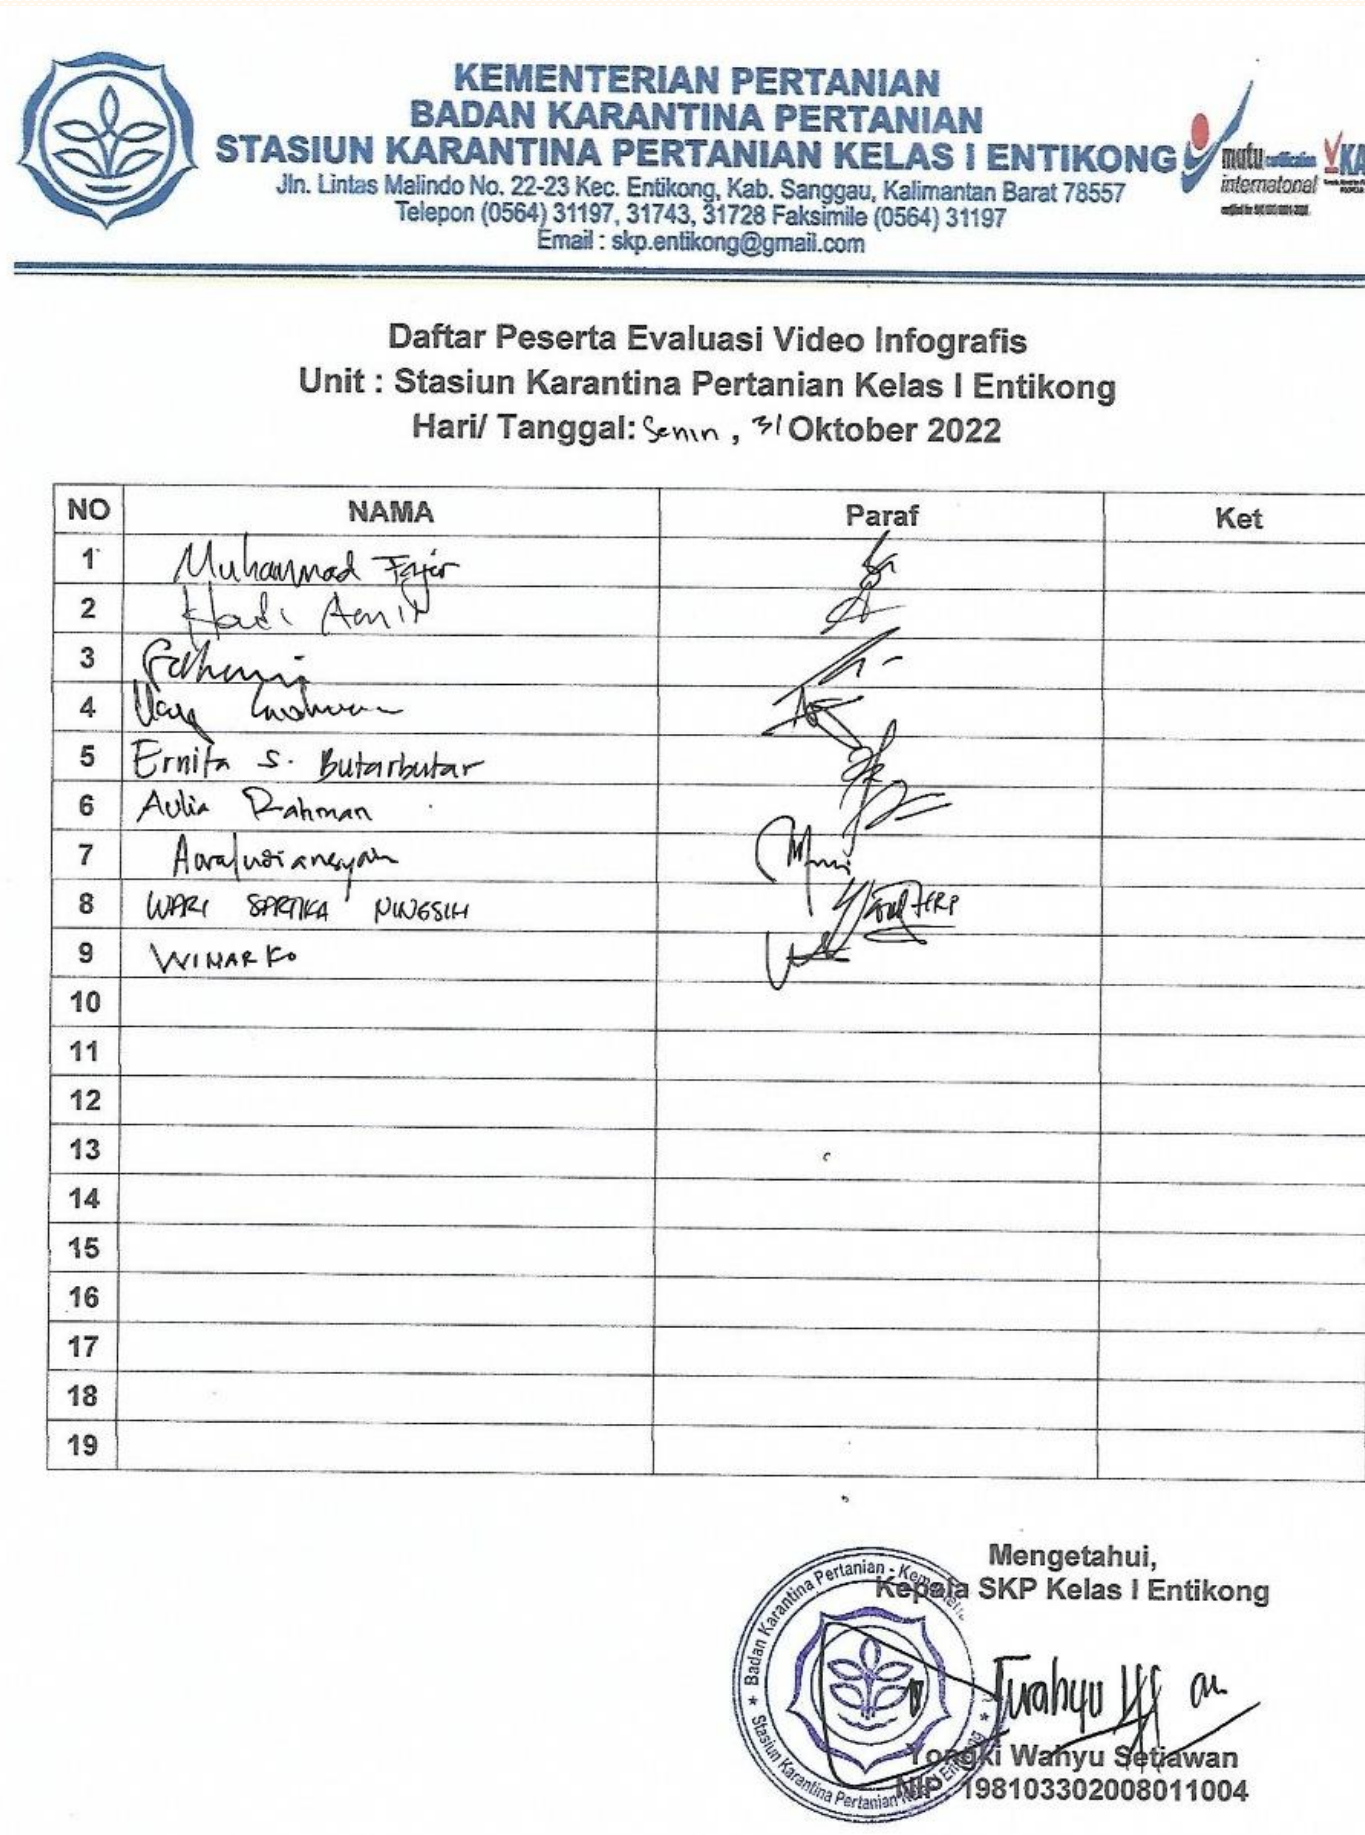 KEMENTERIAN PERTANIAN
BADAN KARANTINA PERTANIAN
STASIUN KARANTINA PERTANIAN KELAS I ENTIKONG
Jln. Lintas Malindo No. 22-23 Kec. Entikong, Kab. Sanggau, Kalimantan Barat 78557
Telepon (0564) 31197, 31743, 31728 Faksimile (0564) 31197
Email : skp.entikong@gmail.com
mutu certification
international
KA
Daftar Peserta Evaluasi Video Infografis
Unit : Stasiun Karantina Pertanian Kelas I Entikong
Hari/ Tanggal: Senin, 31 Oktober 2022
NO NAMA Paraf Ket
1 Muhammad Fajar
2 Hadi
3
4
5 Ernita S. Butarbutar
6 Aulia Rahman
7
8 WARI SARTIKA NINGSIH
9 WINARKO
10
11
12
13
14
15
16
17
18
19
Mengetahui,
Kepala SKP Kelas I Entikong
Badan Karantina Pertanian - Kementerian
Stasiun Karantina Pertanian
Yongki Wahyu Setiawan
NIP 198103302008011004